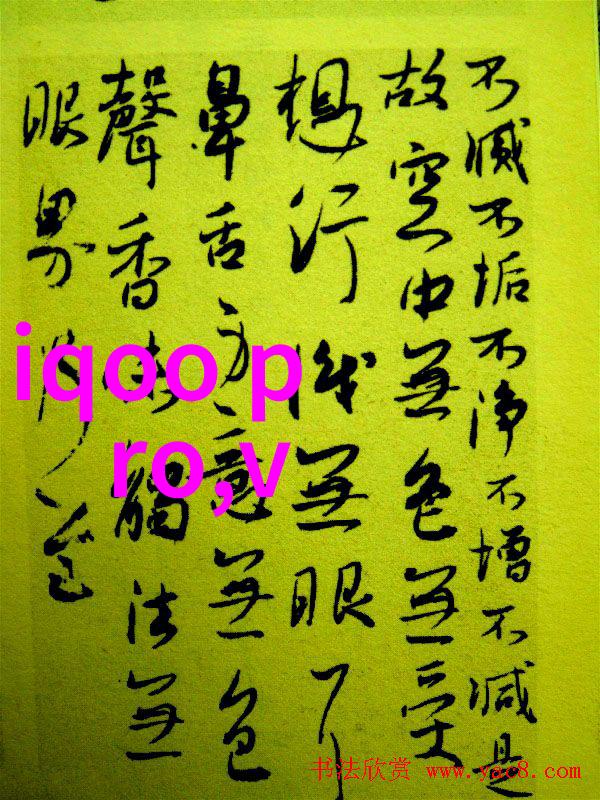 不滅不垢不淨不增不減是
故空中無色無受
想行識無眼耳
鼻舌身意無色
聲香味觸法無
眼界乃
iqoo.p
ro,v
书法欣赏 www.yac8.com